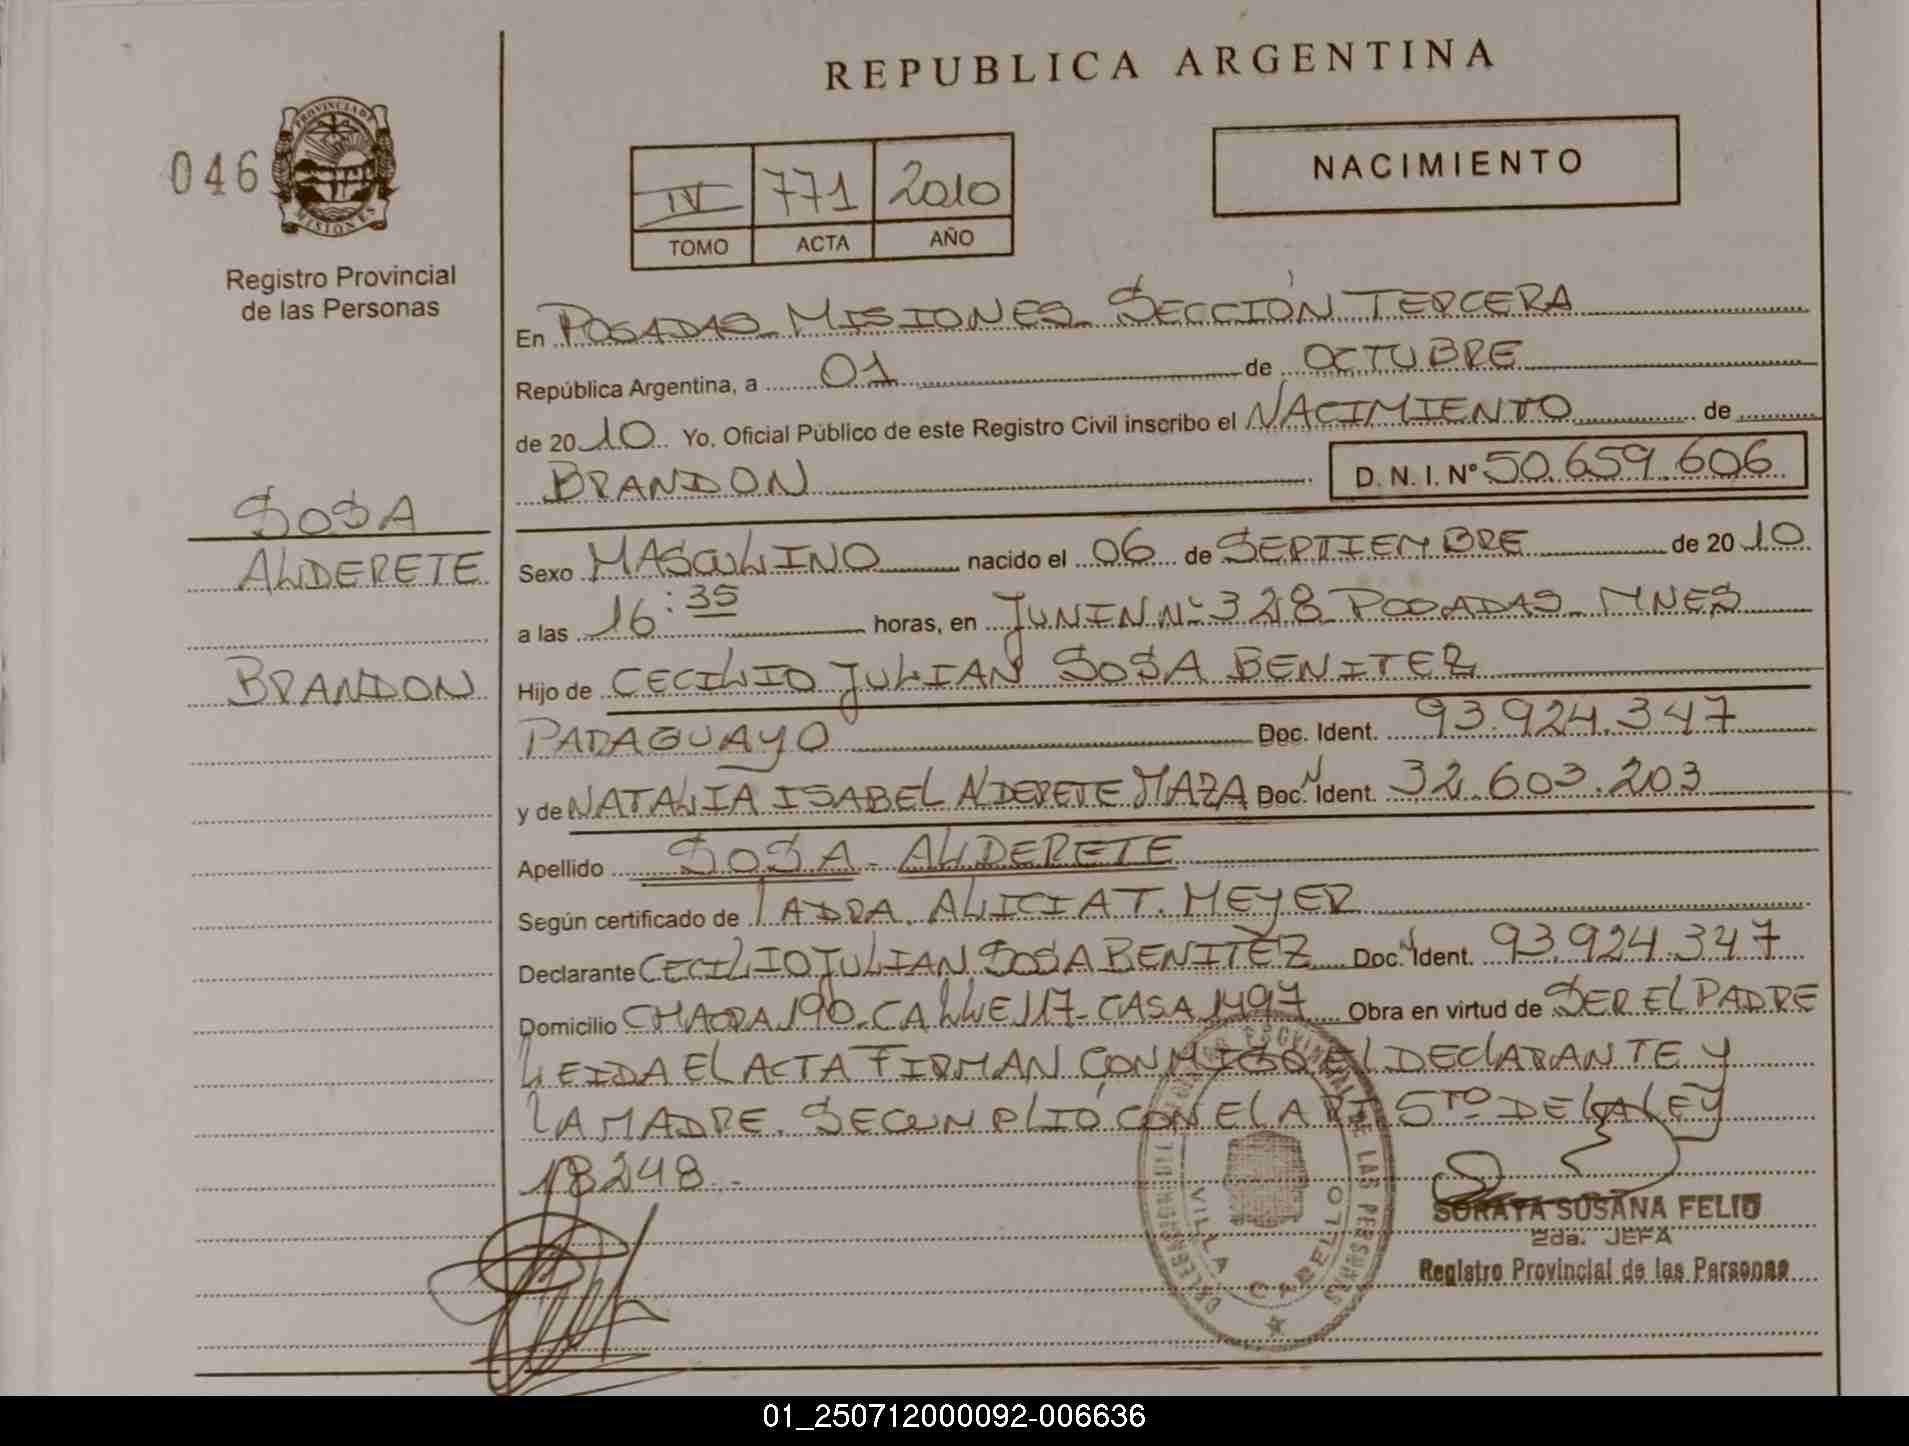 REPUBLICA ARGENTINA
046
PROVINCIA DE MISIONES
Registro Provincial
de las Personas
IV 771 2010
TOMO ACTA AÑO
NACIMIENTO
En POSADAS MISIONES SECCIÓN TERCERA
República Argentina, a 01 de OCTUBRE
de 2010 Yo. Oficial Público de este Registro Civil inscribo el NACIMIENTO de
BRANDON D. N. I. Nº 50.659.606
SOSA
ALDERETE
BRANDON
Sexo MASCULINO nacido el 06 de SEPTIEMBRE de 2010
a las 16:35 horas, en JUNIN Nº 328 POSADAS - MNES
Hijo de CECILIO JULIAN SOSA BENITEZ
PARAGUAYO Doc. Ident. 93.924.347
y de NATALIA ISABEL ALDERETE MAZA Doc. Ident. 32.603.203
Apellido SOSA - ALDERETE
Según certificado de LA DRA. ALICIA T. MEYER
Declarante CECILIO JULIAN SOSA BENITEZ Doc. Ident. 93.924.347
Domicilio CHACRA 190 - CALLE 117 - CASA 1497 Obra en virtud de SER EL PADRE
LEIDA EL ACTA FIRMAN CONMIGO EL DECLARANTE Y
LA MADRE. SE CUMPLIÓ CON EL ART 5TO DE LA LEY
18248.-
VILLA CABELLO
SORAYA SUSANA FELIU
2da. JEFA
Registro Provincial de las Personas
01_250712000092-006636